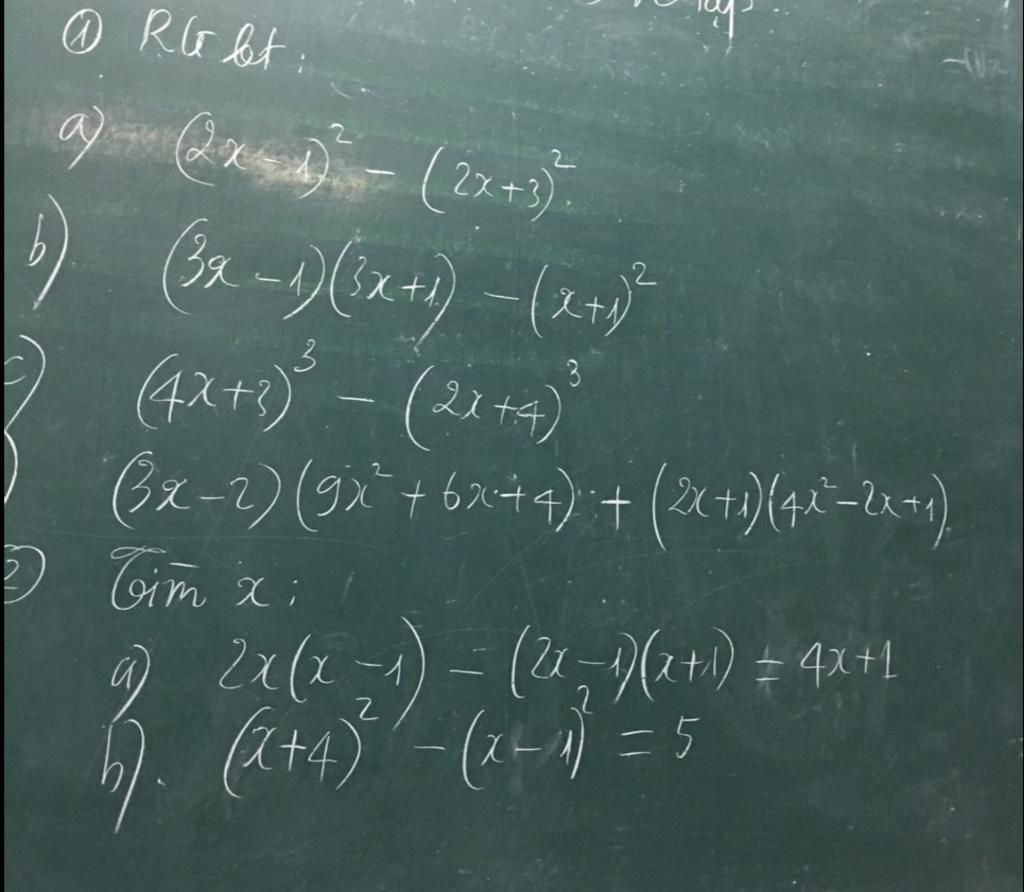 ① RG bt :
a) (2x-1)² - (2x+3)²
b) (3x-1)(3x+1) - (x+1)²
c) (4x+3)³ - (2x+4)³
(3x-2)(9x²+6x+4) + (2x+1)(4x²-2x+1)
② Tìm x :
a) 2x(x-1) - (2x-1)(x+1) = 4x+1
b). (x+4)² - (x-1)² = 5